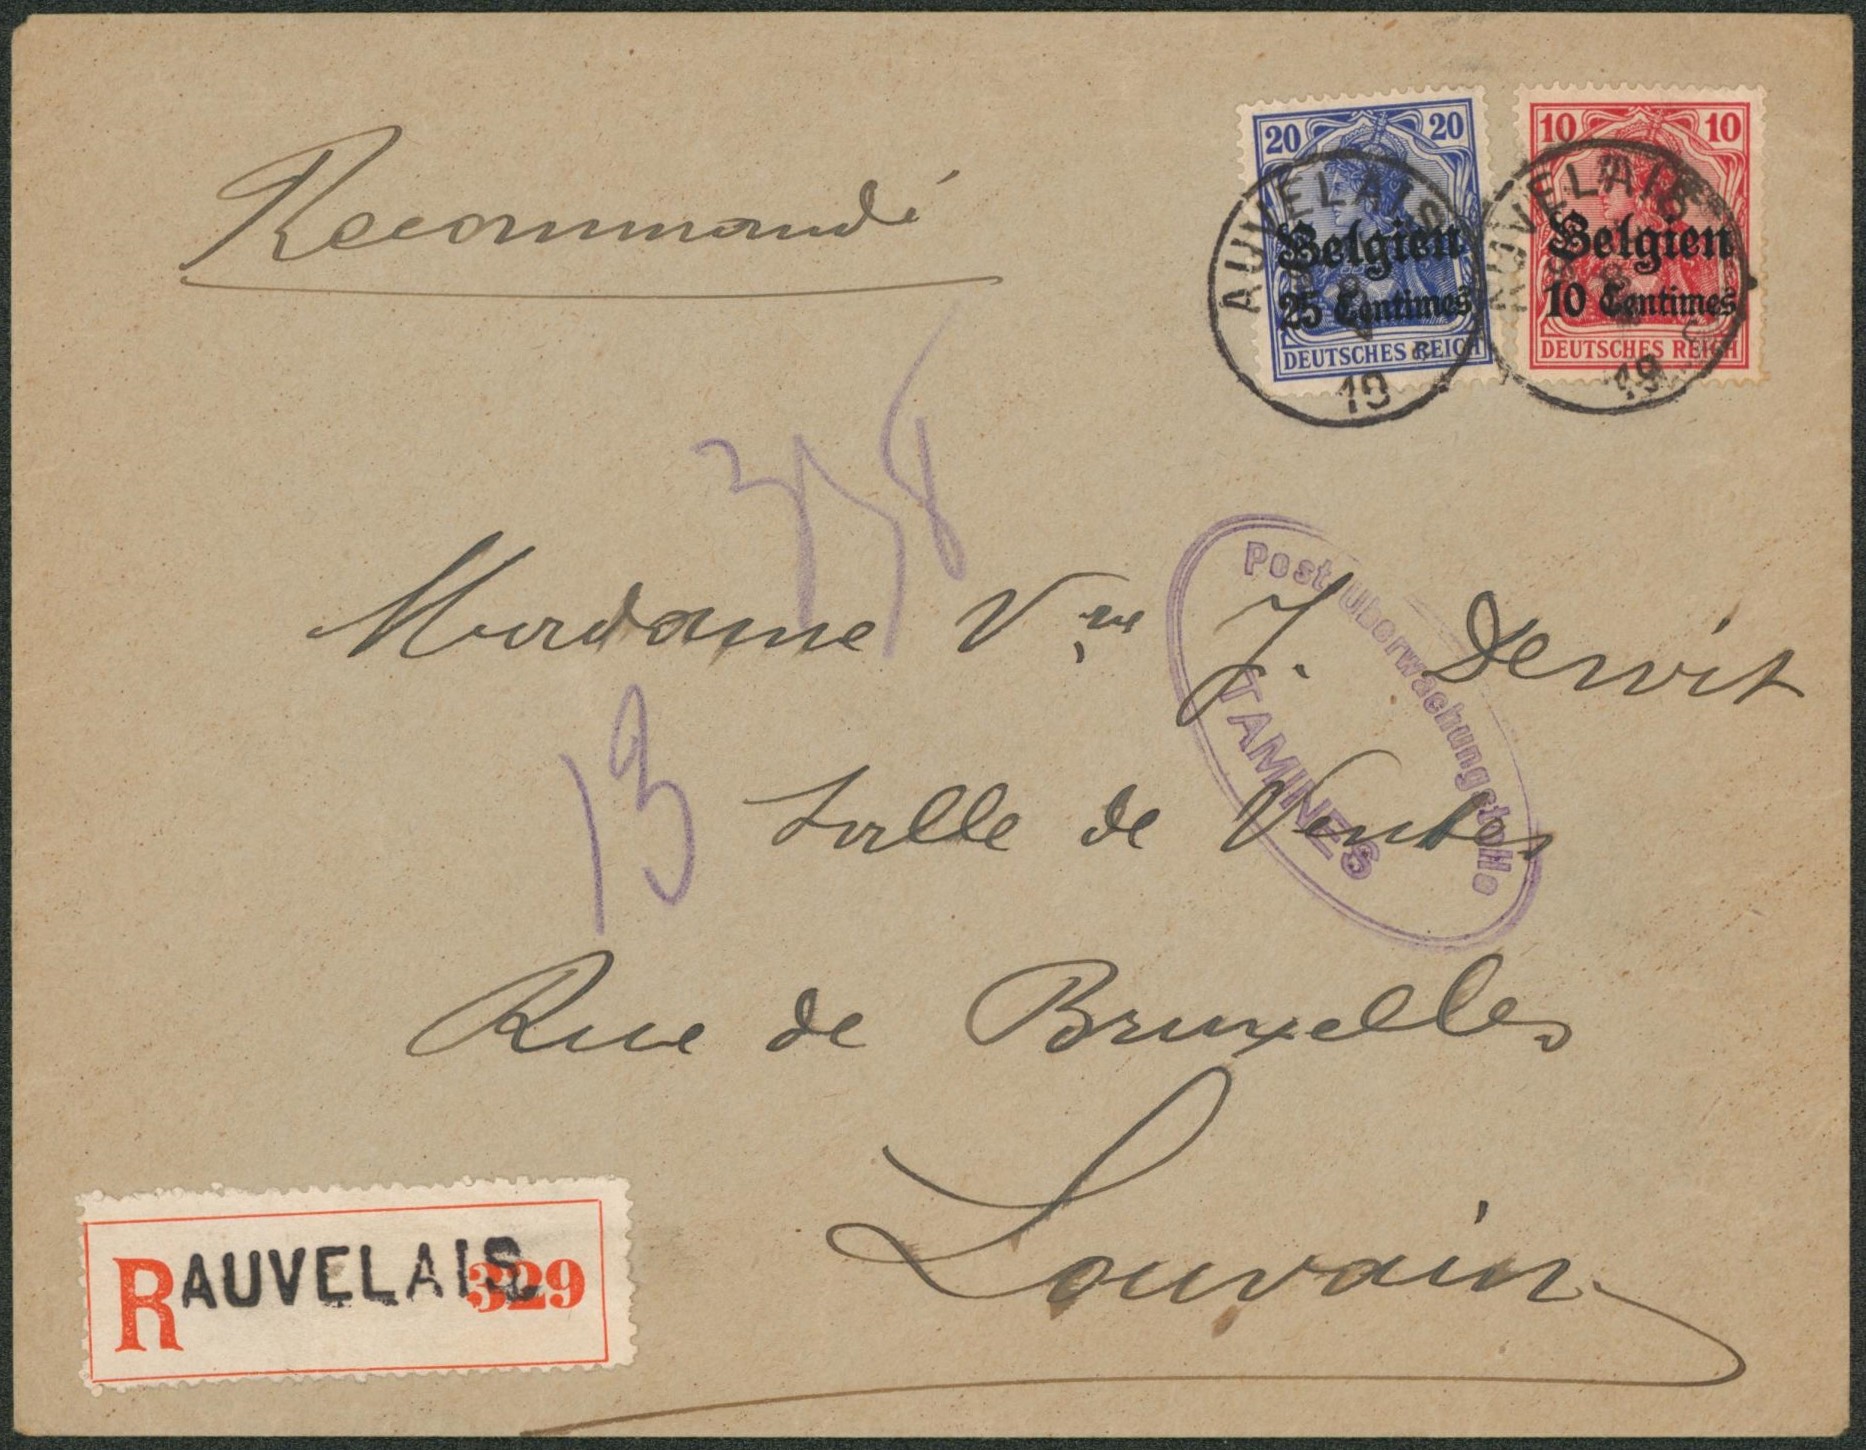 Recommandé
20 20
Belgien
25 Centimes
DEUTSCHES REICH
10 10
Belgien
10 Centimes
DEUTSCHES REICH
AUVELAIS
19
AUVELAIS
19
Madame Vve J. Dewit
Postüberwachungsstelle
TAMINES
13
Salle de Ventes
Rue de Bruxelles
Louvain
R AUVELAIS 329